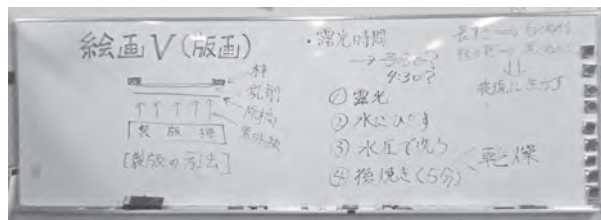 絵画Ⅴ(版画)
枠
乳剤
原稿
紫外線
製版機
[製版の方法]
・露光時間
→3:30?
4:30?
① 露光
② 水にひたす
③ 水圧で洗う
④ 後焼き(5分)
乾燥
表現に生かす